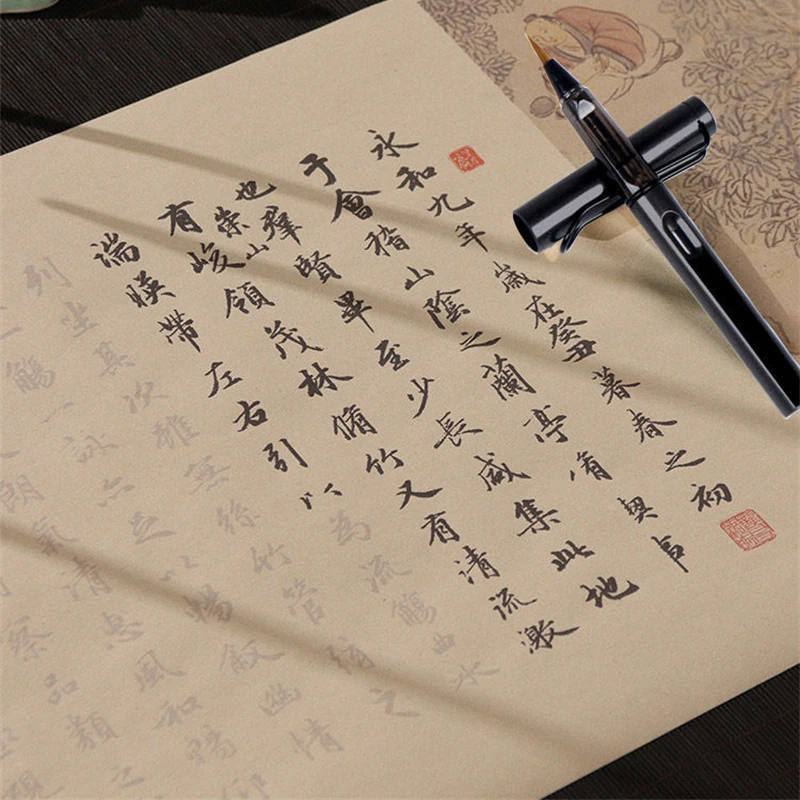 永和九年歲在癸丑暮春之初
于會稽山陰之蘭亭脩禊事
也羣賢畢至少長咸集此地
有崇山峻領茂林脩竹又有清流激
湍暎帶左右引以為流觴曲水
列坐其次雖無絲竹管弦之
一觴一詠亦足以暢敘幽情
朗氣清惠風和暢仰
察品類之